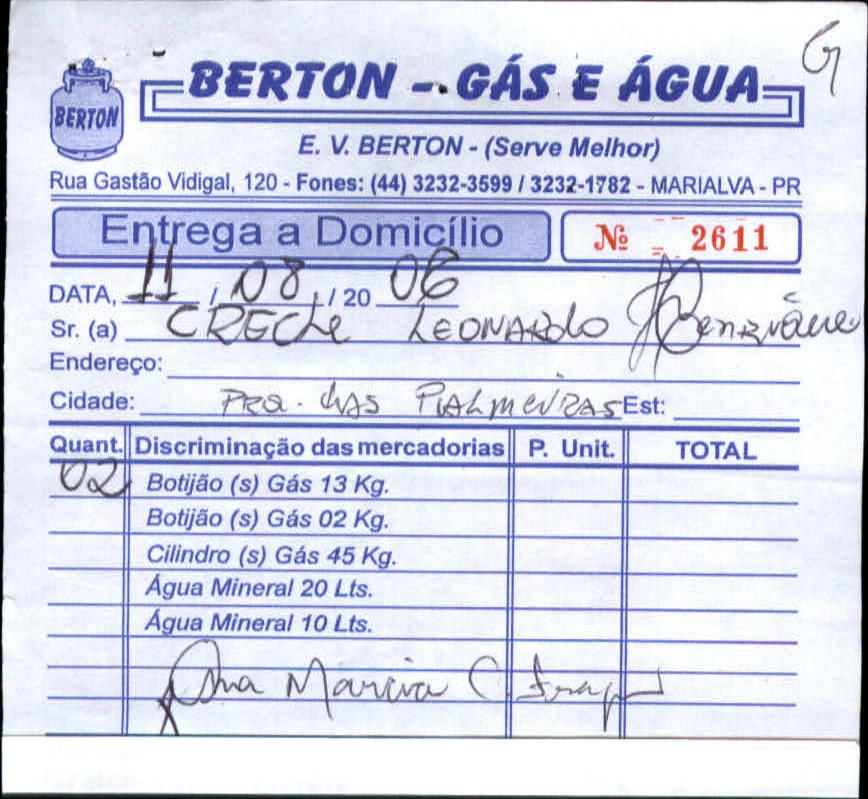 G
BERTON - GÁS E ÁGUA
BERTON
E. V. BERTON - (Serve Melhor)
Rua Gastão Vidigal, 120 - Fones: (44) 3232-3599 / 3232-1782 - MARIALVA - PR
Entrega a Domicílio
Nº 2611
DATA, 11 / 08 / 20 06
Sr. (a) CRECHE LEONARDO
Endereço:
Cidade: PRA. DAS PALMEIRAS Est:
Quant. Discriminação das mercadorias P. Unit. TOTAL
02 Botijão (s) Gás 13 Kg.
Botijão (s) Gás 02 Kg.
Cilindro (s) Gás 45 Kg.
Água Mineral 20 Lts.
Água Mineral 10 Lts.
Ana Márcia C.